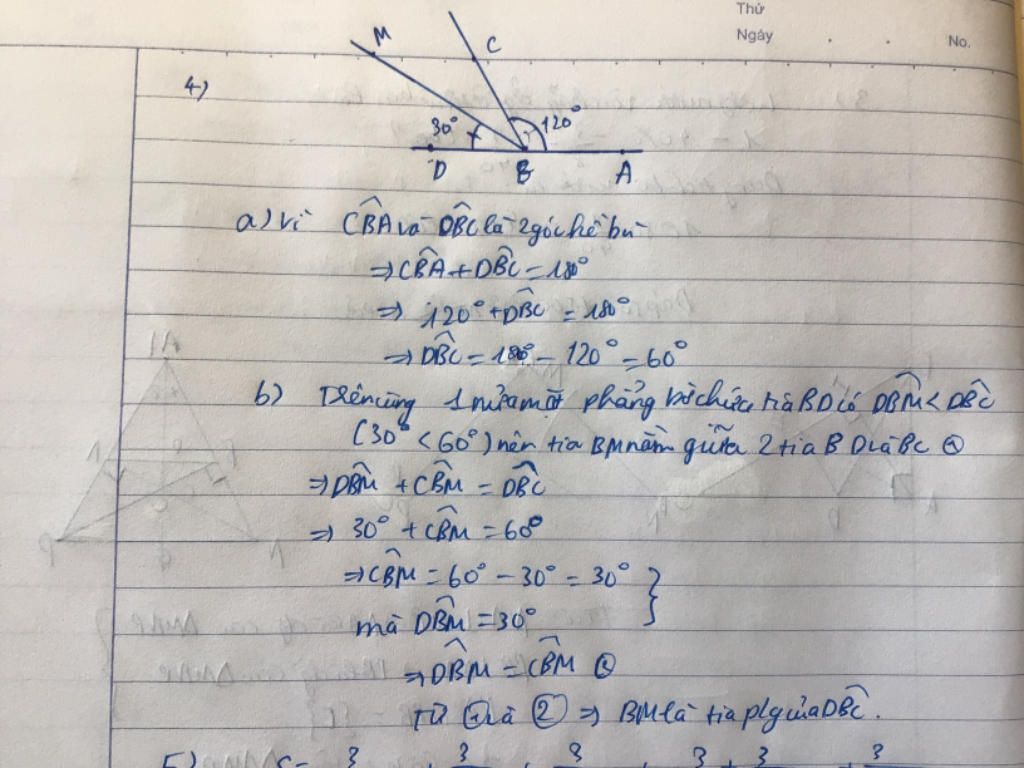 Thứ
Ngày . . No.
4)
M
C
30°
120°
D B A
a) Vì CBA và DBC là 2 góc kề bù
⇒ CBA + DBC = 180°
⇒ 120° + DBC = 180°
⇒ DBC = 180° - 120° = 60°
b) Trên cùng 1 nửa mặt phẳng bờ chứa tia BD có DBM < DBC
(30° < 60°) nên tia BM nằm giữa 2 tia BD và BC ①
⇒ DBM + CBM = DBC
⇒ 30° + CBM = 60°
⇒ CBM = 60° - 30° = 30° }
mà DBM = 30°
⇒ DBM = CBM ②
Từ ① và ② ⇒ BM là tia p/g của DBC.
5)